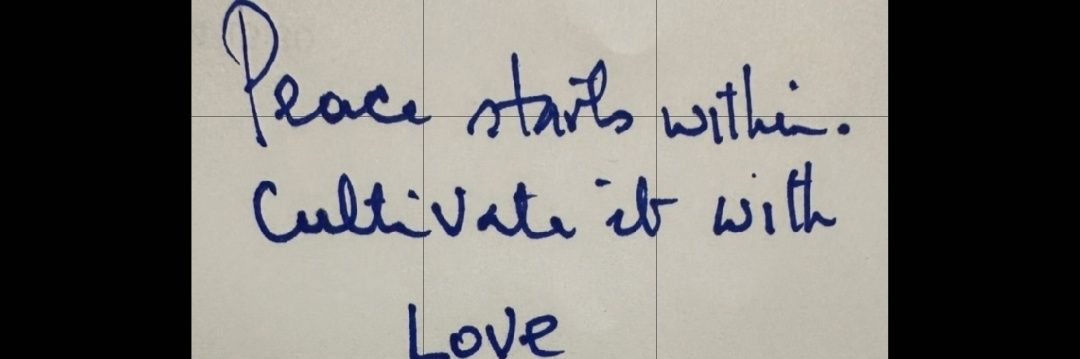 Peace starts within.
Cultivate it with
Love